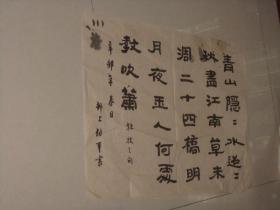 青山隱〻水迢〻
秋盡江南草未
凋二十四橋明
月夜玉人何處
教吹簫 杜牧之詩
辛卯年春日